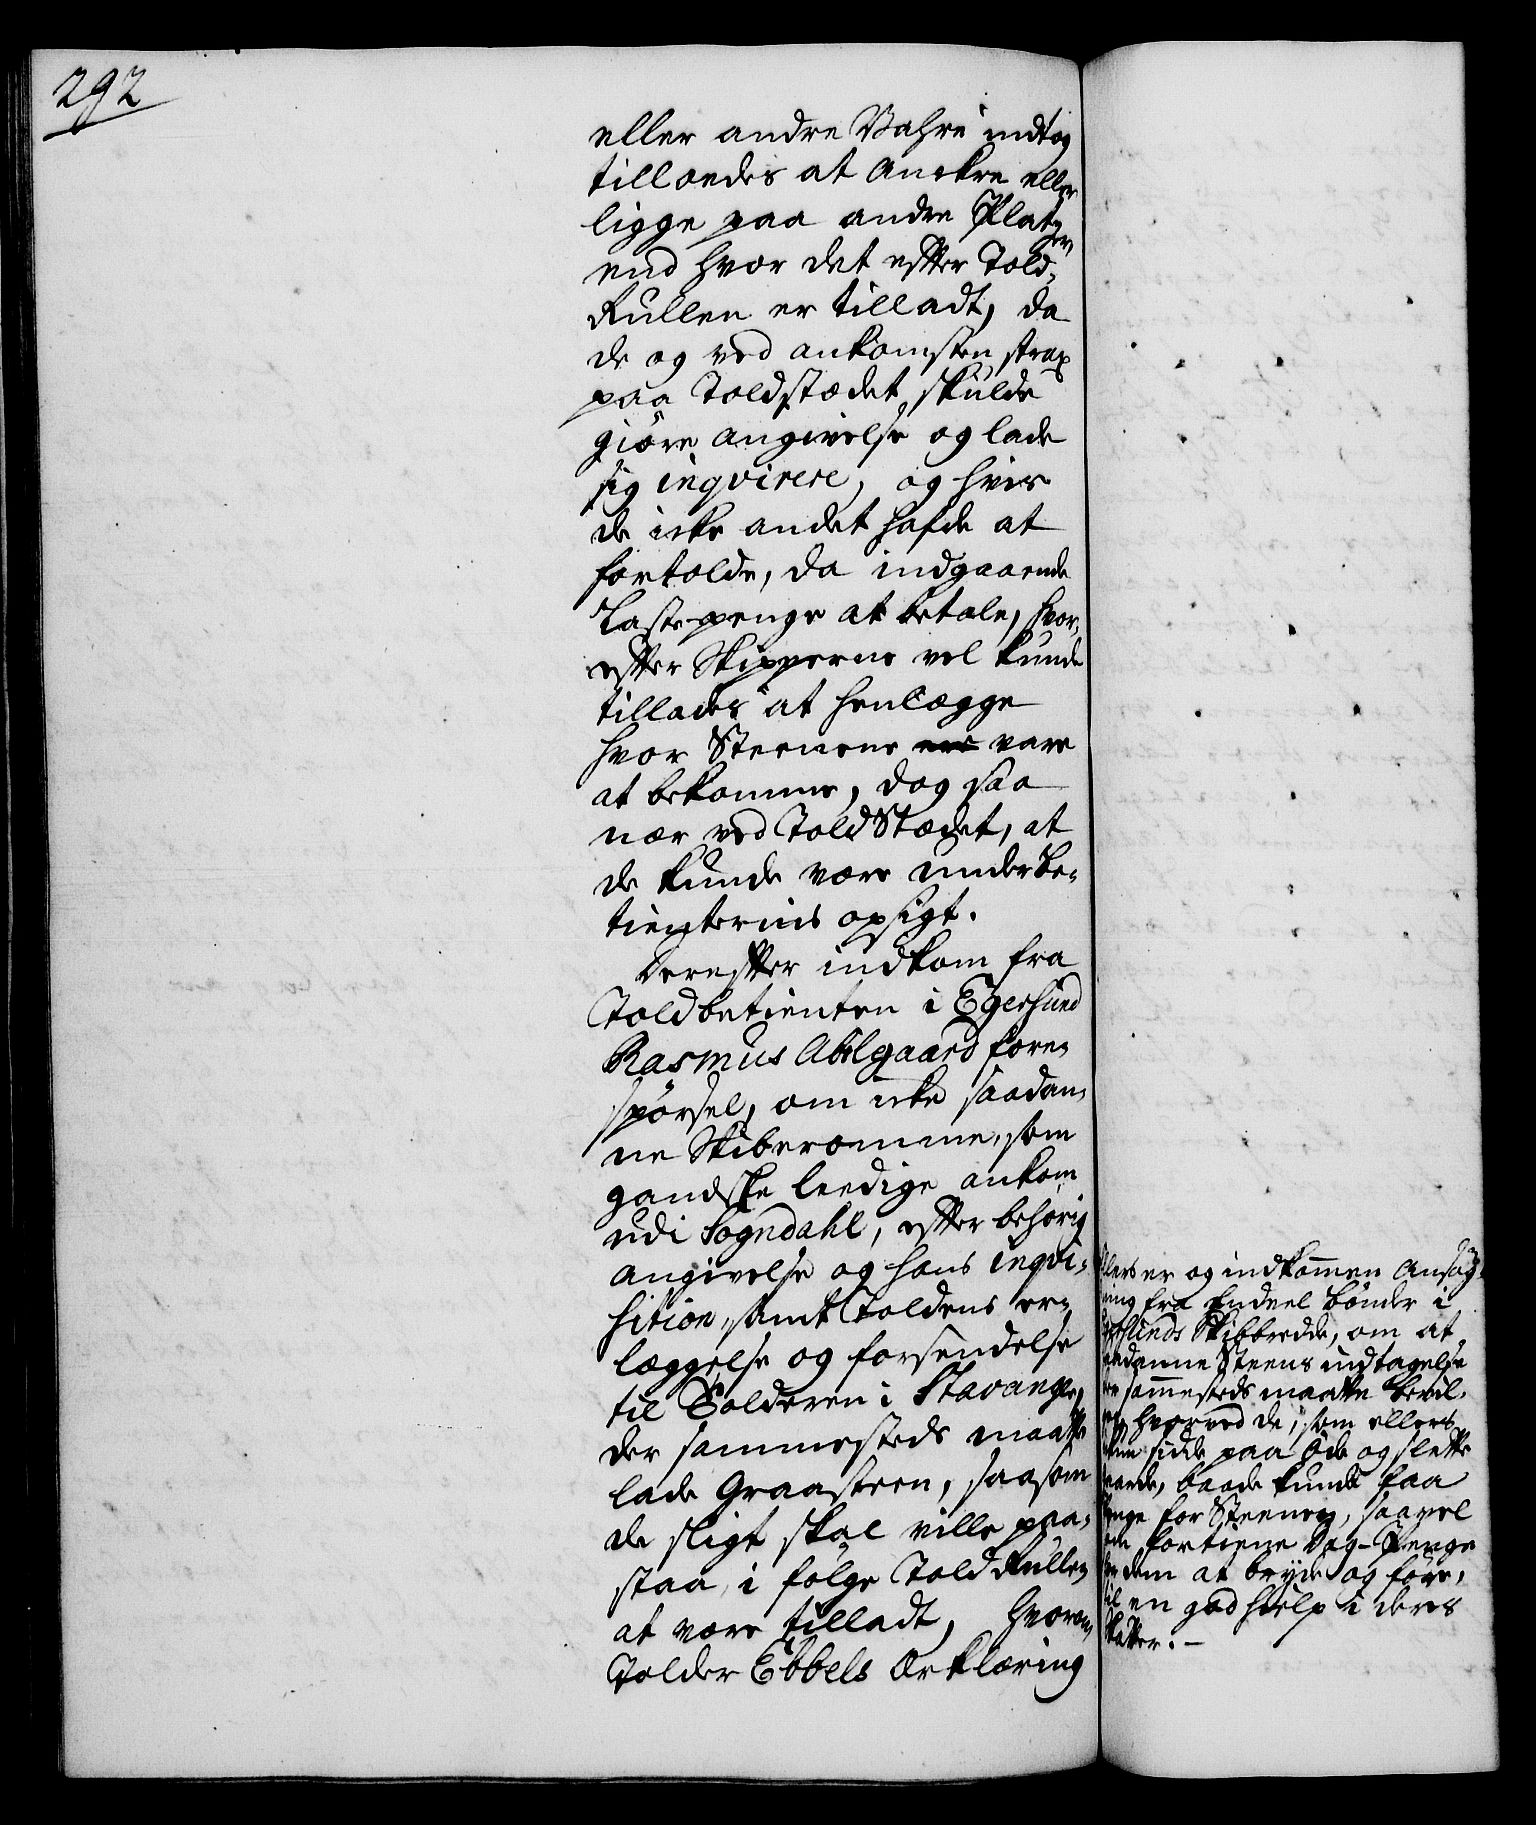 292
eller andre Vahre indtog
tillodes at Anckre eller
ligge paa andre Platzer,
end hvor det efter Told-
Rullen er tilladt, da
de og ved ankomsten strax
paa Toldstædet skulde
giöre angivelse og lade
sig inqvirere, og hvis
de icke andet hafde at
fortolde, da indgaaende
Lastepenge at betale, hvor-
efter Skipperne vel kunde
tillades at henlægge
hvor Steenene ere vare
at bekomme, dog saa
nær ved ToldStædet, at
de kunde være under be-
tienternis opsigt.
Derefter indkom fra
Toldbetienten i Egersund
Rasmus Abilgaard fore-
spörsel, om icke saadan-
ne Skiberomme, som
gandske leedige ankom
udi Sogndahl, efter behörig
angivelse og hans inqvi-
sition, samt Toldens er-
læggelse og forsendelse
til Tolderen i Stavanger,
der sammesteds maatte
lade Graasteen, saasom
de sligt skal ville paa-
staa, i fölge Told Rullen
at være tilladt, hvorom
Tolder Ebbels Erklæring
er og indkommen Ansög-
fra Endeel bönder i
Skibbredde, om at
Steens indtagelse
sammesteds maatte bevil-
hvorved de, som ellers
sidde paa öde og slette
baade kunde faa
for Steenen, saavel
fortiene Dag-Penge
dem at bryde og före,
en god hielp i deres